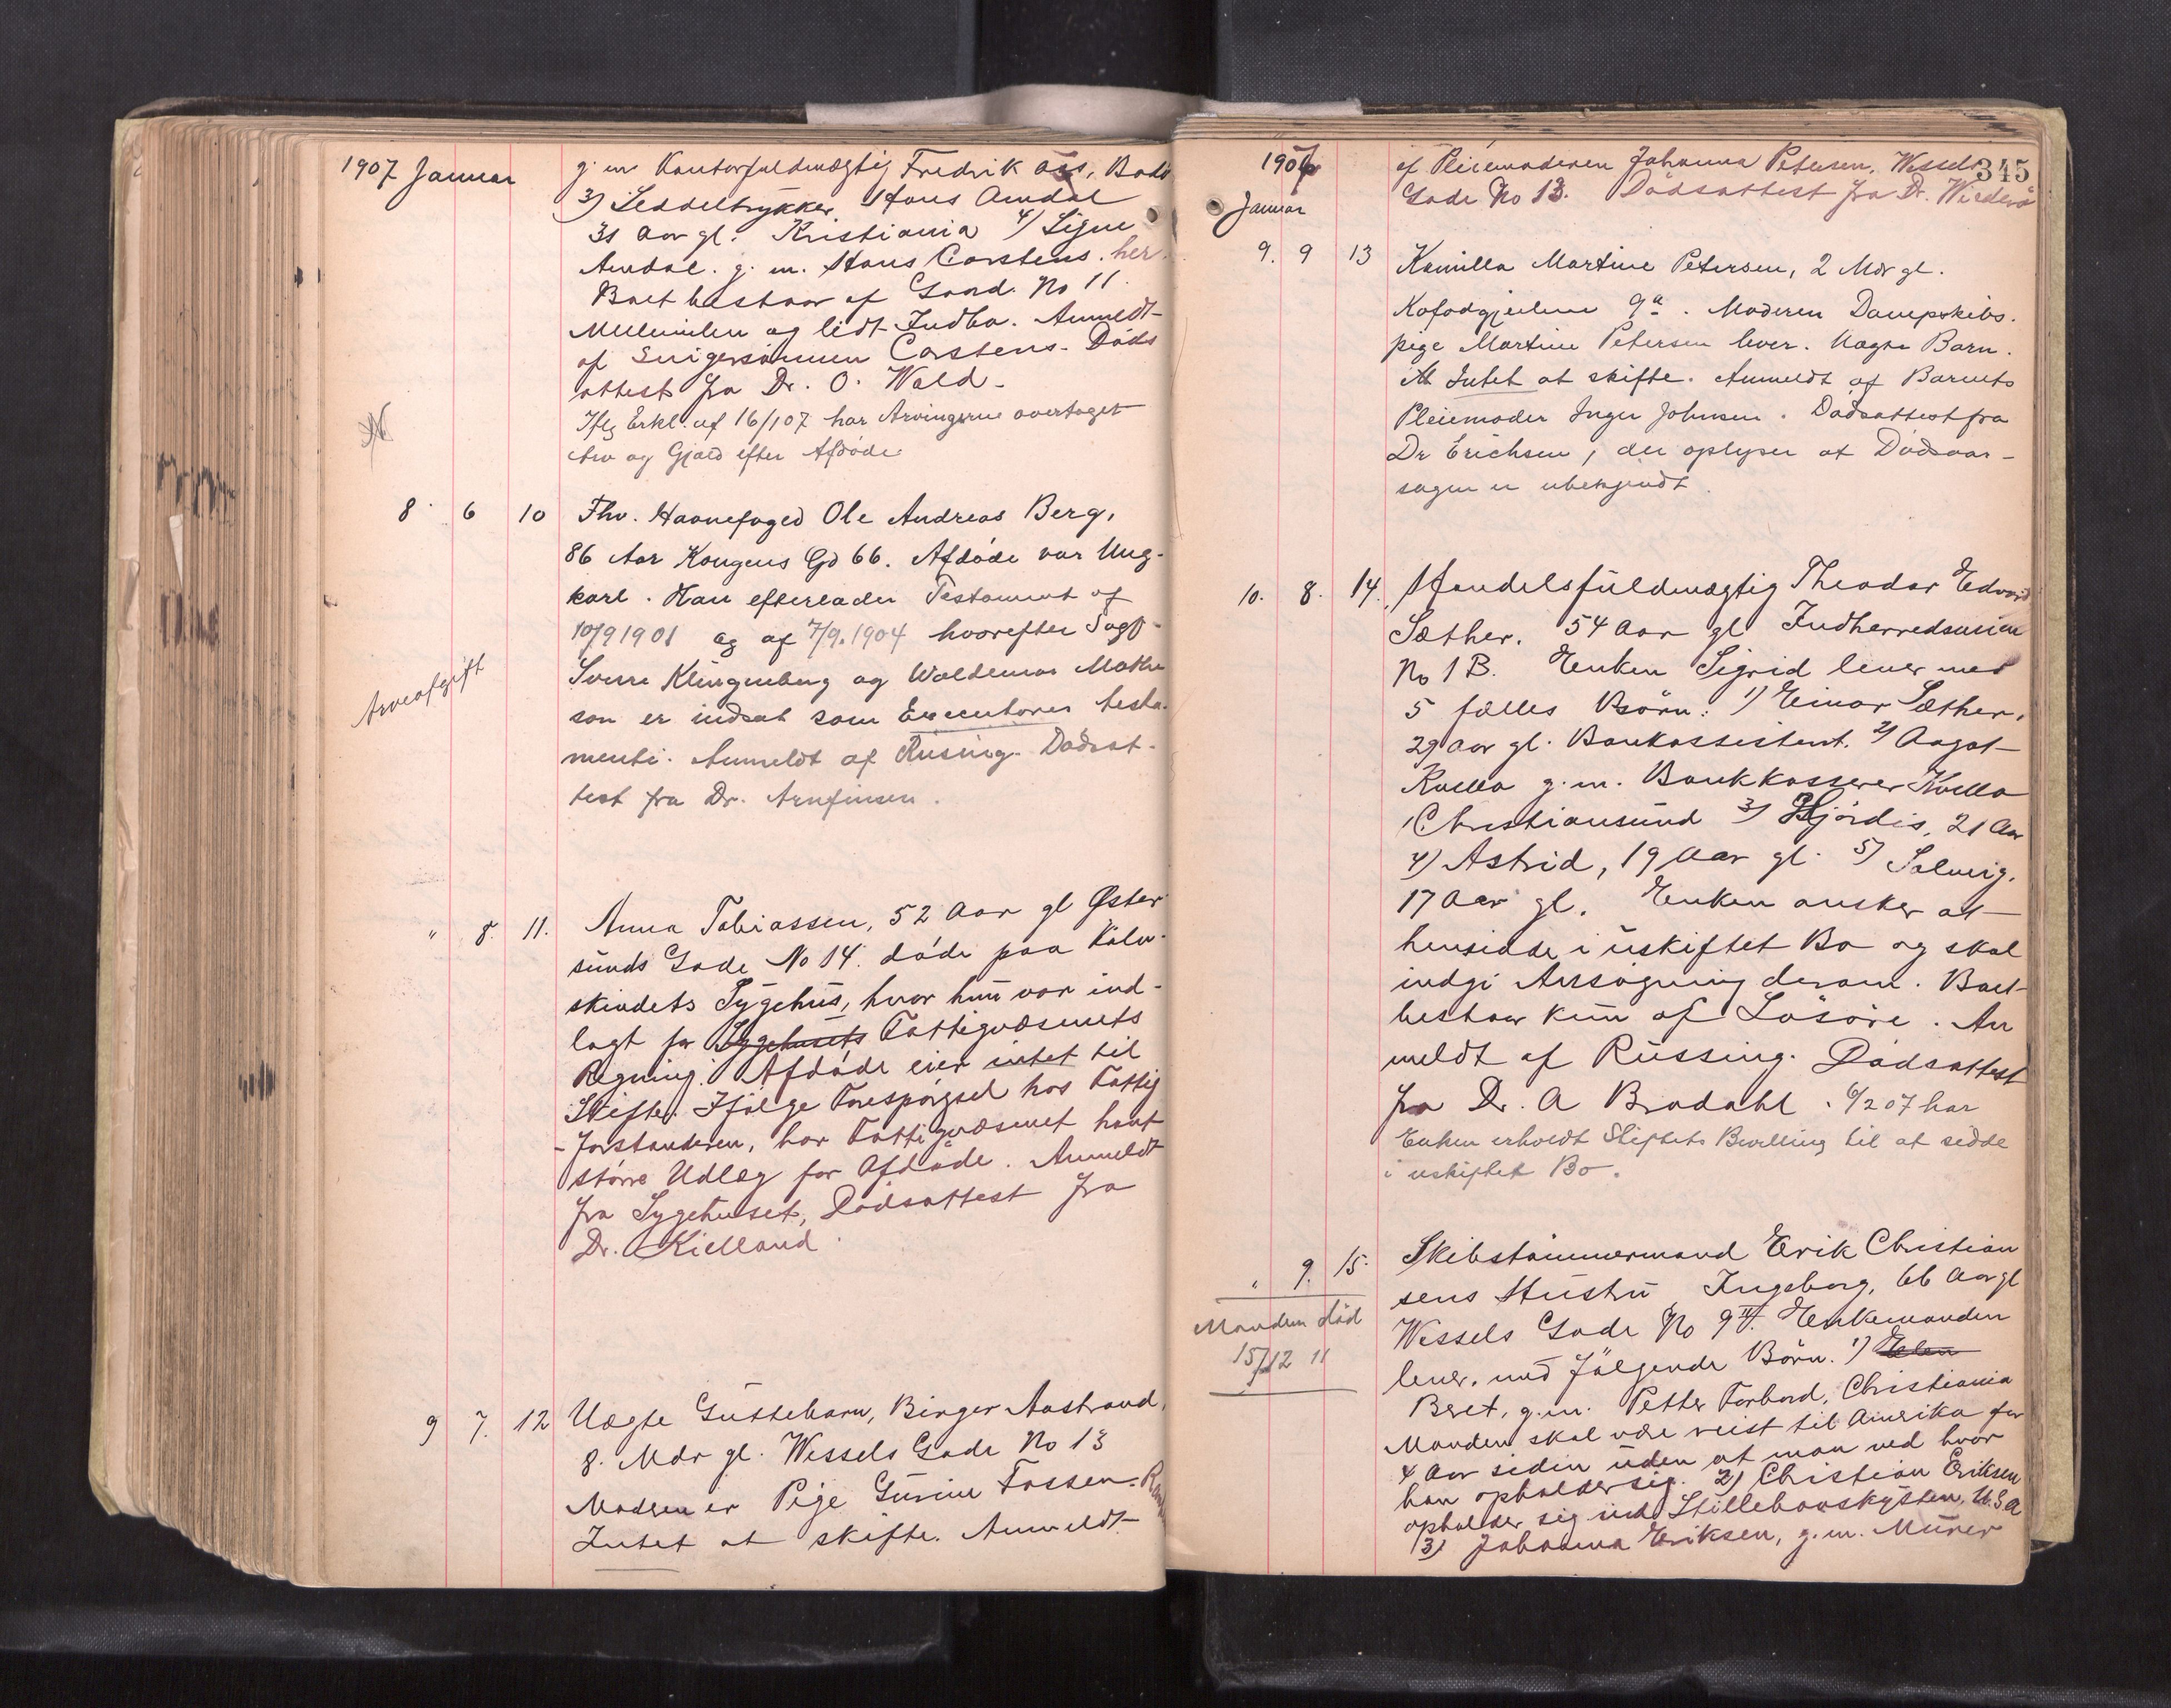 1907 Januar
g. m Kontorfuldmægtig Fredrik Aas, Bodö
3) Seddeltrykker Hans Amdal
31 Aar gl. Kristiania 4) Signe
Amdal. g. m. Hans Carstens. her.
Boet bestaar af Gaard No 11
Møllenilen og lidt Indbo. Anmeldt
af Svigersönnen Carstens. Döds
attest fra Dr. O. Wald.
Iflg Erkl. af 16/1 07 har Arvingerne overtaget
Arv og Gjæld efter Afdöde
8 6 10 Fhv. Havnefoged Ole Andreas Berg,
86 Aar Kongens Gd 66. Afdöde var Ung-
karl. Han efterlader Testament af
10/9 1901 og af 7/9. 1904 hvorefter Sagf.
Arveafgift
Sverre Klingenberg og Waldemar Mathe
son er indsat som Executores testa-
menti. Anmeldt af Rusing. Dödsat-
test fra Dr. Arnfinsen.
" 8. 11. Anna Tobiassen, 52 Aar gl Øster
sunds Gade No 14. döde paa Kalv-
skindets Sygehus, hvor hun var ind-
lagt for Sygehusets Fattigvæsenets
Regning. Afdöde eier intet til
Skifte. Ifölge Forespörgsel hos Fattig
-forstanderen, har Fattigvæsenet havt
större Udlæg for Afdöde. Anmeldt
fra Sygehuset, Dödsattest fra
Dr. Kielland.
9 7. 12 Uægte Guttebarn, Birger Aastrand,
8. Mdr gl. Wessels Gade No 13
Moderen er Pige Gurine Fossen.
Intet at skifte. Anmeldt
345
1907
af Pleiemoderen Johanna Petersen, Wessels
Januar
Gade No 13. Dödsattest fra Dr. Wideröe
9. 9 13 Kamilla Martine Petersen, 2 Mdr gl.
9a. Moderen Dampskibs.
pige Martine Petersen lever. Uægte Barn.
Intet at skifte. Anmeldt af Barnets
Pleiemoder Inger Johnsen. Dödsattest fra
Dr Erichsen, der oplyser at Dödsaar-
sagen er ubekjendt.
10. 8. 14. Handelsfuldmægtig Theodor Edvard
Sæther. 54 Aar gl Indherredsveien
No 1 B. Enken Sigrid lever med
5 fælles Börn: 1) Einar Sæther,
29 Aar gl. Bankassistent. 2) Aagot
Kvello g. m. Bankkasserer Kvello
Christiansund 3) Hjördis, 21 Aar
4) Astrid, 19 Aar gl. 5) Solveig,
17 Aar gl. Enken önsker at
hensidde i uskiftet Bo og skal
indgi Ansögning derom. Boet
bestaar kun af Lösöre. An
meldt af Russing. Dödsattest
fra Dr. A Brodahl. 6/2 07 har
Enken erholdt Skiftets Bevilling til at sidde
i uskiftet Bo.
" 9. 15. Skibstömmermand Erik Christian
sens Hustru Ingeborg, 66 Aar gl
Manden död
Wessels Gade No 9 II. Enkemanden
15/12 11
lever. med fölgende Börn. 1) Elen
Beret, g. m. Petter Forbord, Christiania
Manden skal være reist til Amerika for
4 Aar siden uden at man ved hvor
han opholder sig. 2) Christian Eriksen
opholder sig ved Stillehavskysten, U. S. A
3) Johanna Eriksen, g. m. Murer